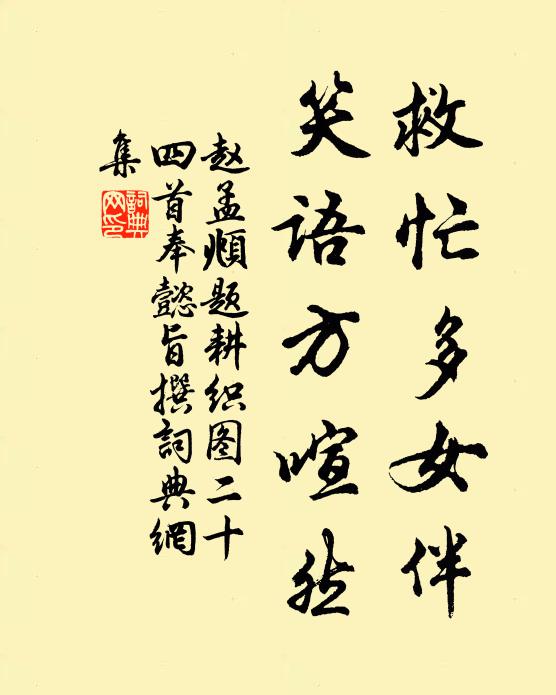 救忙多女伴
笑语方喧然
赵孟頫题耕织图二十
四首奉懿旨撰詞典網
集
詞典
网印